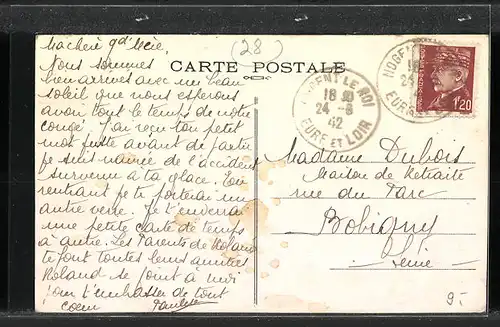 Ma chère gd' Mère.
Nous sommes
bien arrivés avec un beau
soleil que nous espérons
avoir tout le temps de notre
congé. J'ai reçu ton petit
mot juste avant de partir
je suis navrée de l'accident
survenu à ta glace. En
rentrant je te porterai un
autre verre. Je t'enverrai
une petite carte de temps
à autre. Les Parents de Roland
te font toutes leurs amitiés
Roland se joint à moi
pour t'embrasser de tout
coeur Paulette
(28)
CARTE POSTALE
NOGENT LE ROI
18 30
24 - 8
42
EURE ET LOIR
NOGENT
24
EURE
1f20
Madame Dubois
Maison de Retraite
rue du Parc
Bobigny
Seine
9.-